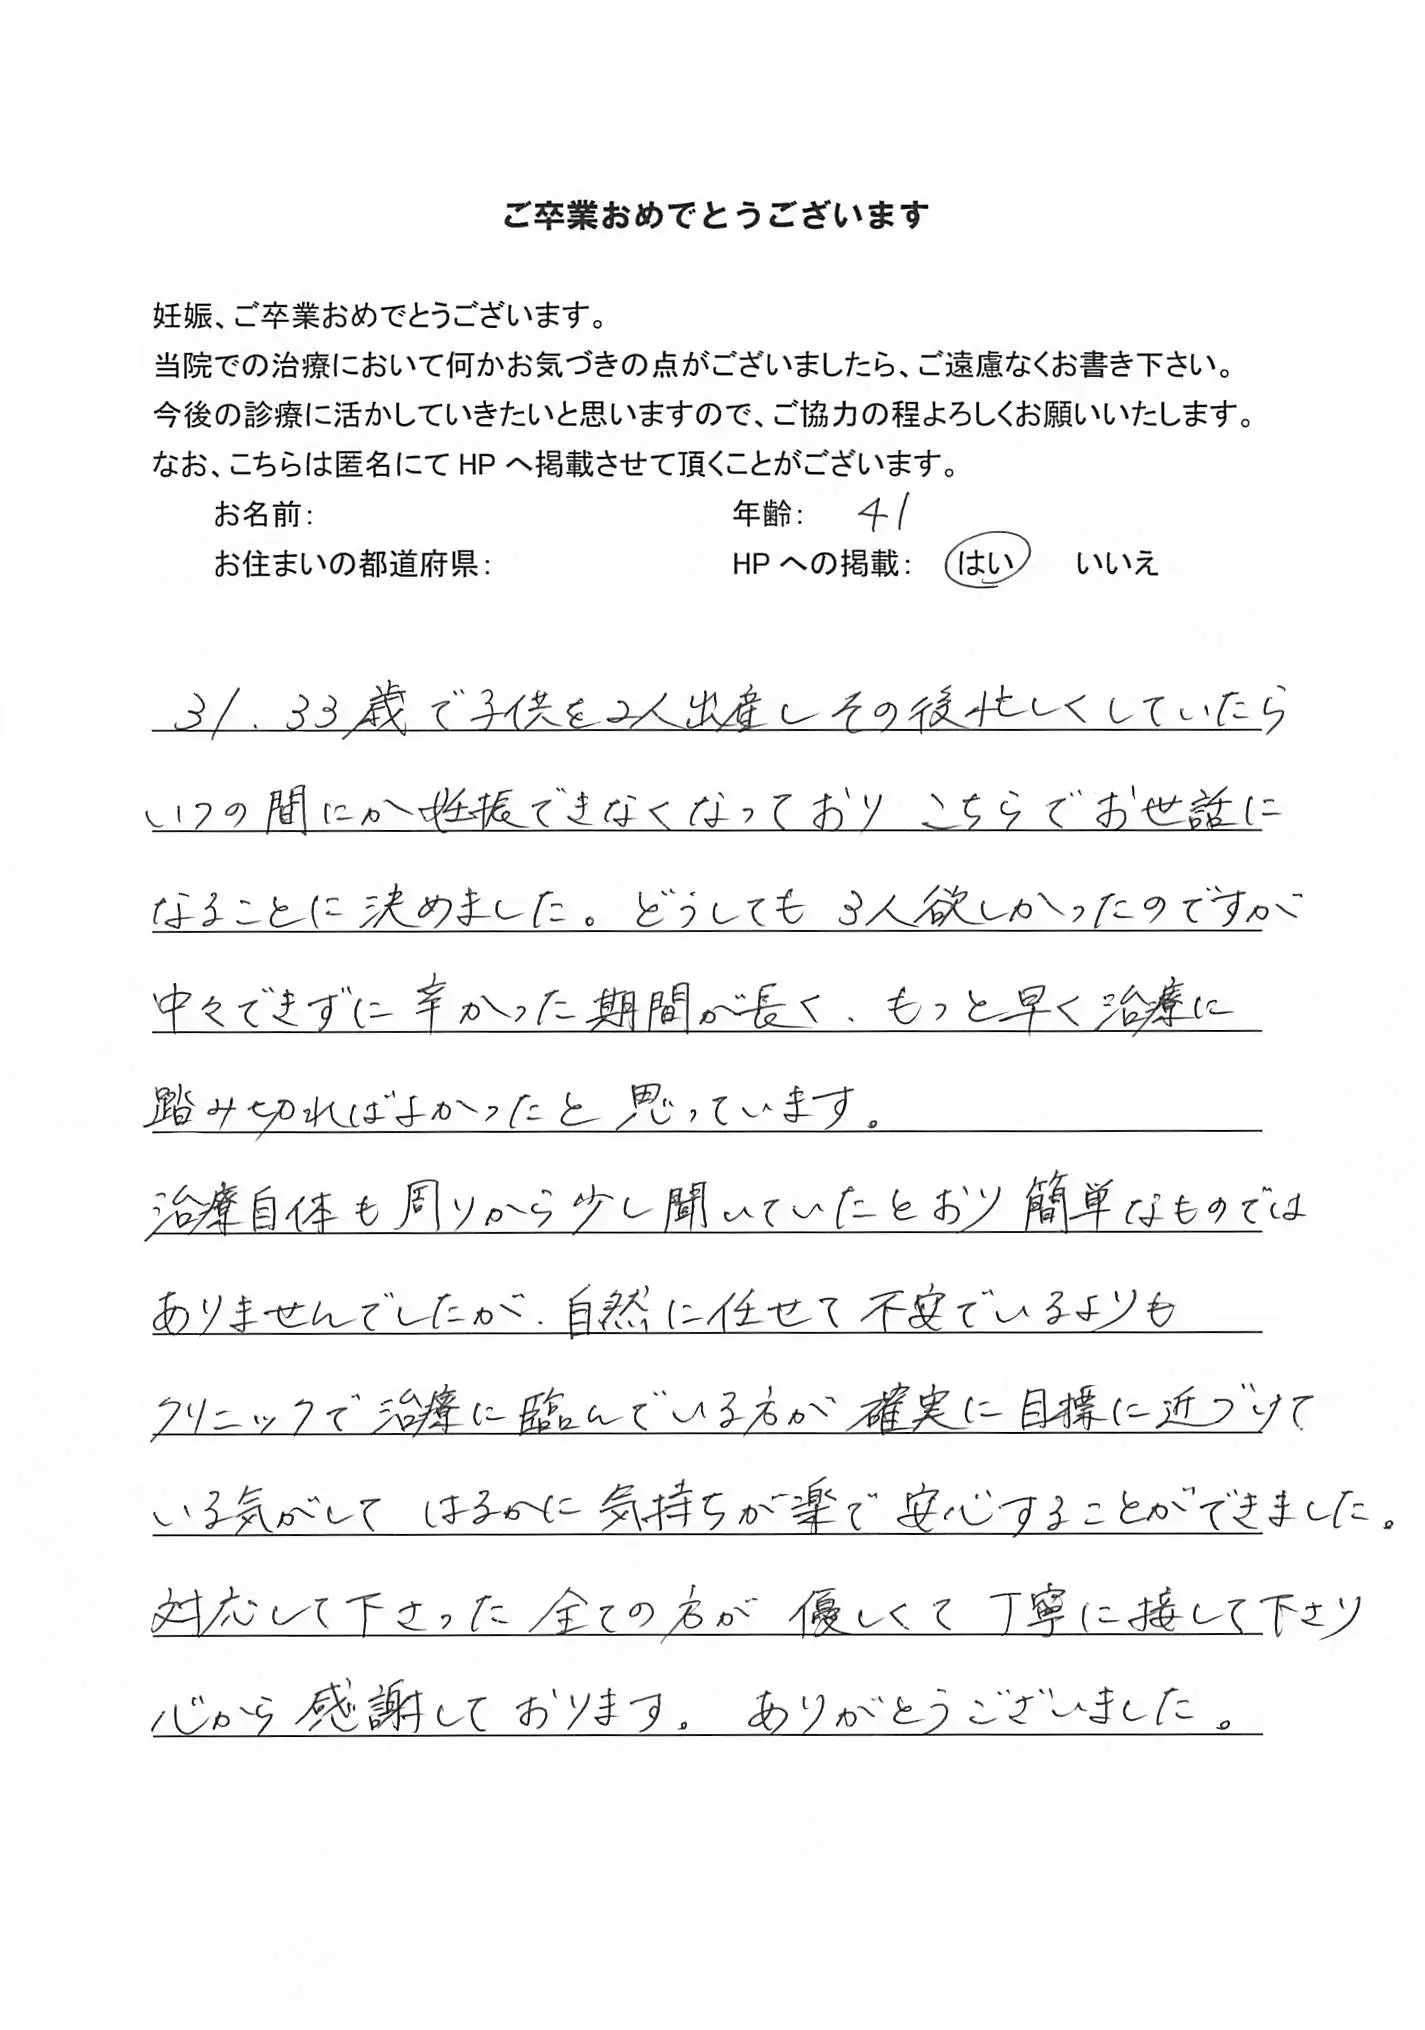 ご卒業おめでとうございます
妊娠、ご卒業おめでとうございます。
当院での治療において何かお気づきの点がございましたら、ご遠慮なくお書き下さい。
今後の診療に活かしていきたいと思いますので、ご協力の程よろしくお願いいたします。
なお、こちらは匿名にて HP へ掲載させて頂くことがございます。
お名前: 年齢: 41
お住まいの都道府県: HP への掲載: はい いいえ
31.33歳で子供を2人出産しその後忙しくしていたら
いつの間にか妊娠できなくなっており こちらでお世話に
なることに決めました。どうしても 3人欲しかったのですが
中々できずに辛かった期間が長く、もっと早く治療に
踏み切ればよかったと思っています。
治療自体も周りから少し聞いていたとおり簡単なものでは
ありませんでしたが、自然に任せて不安でいるよりも
クリニックで治療に臨んでいる方が確実に目標に近づけて
いる気がして はるかに気持ちが楽で安心することができました。
対応して下さった全ての方が 優しくて丁寧に接して下さり
心から感謝しております。 ありがとうございました。